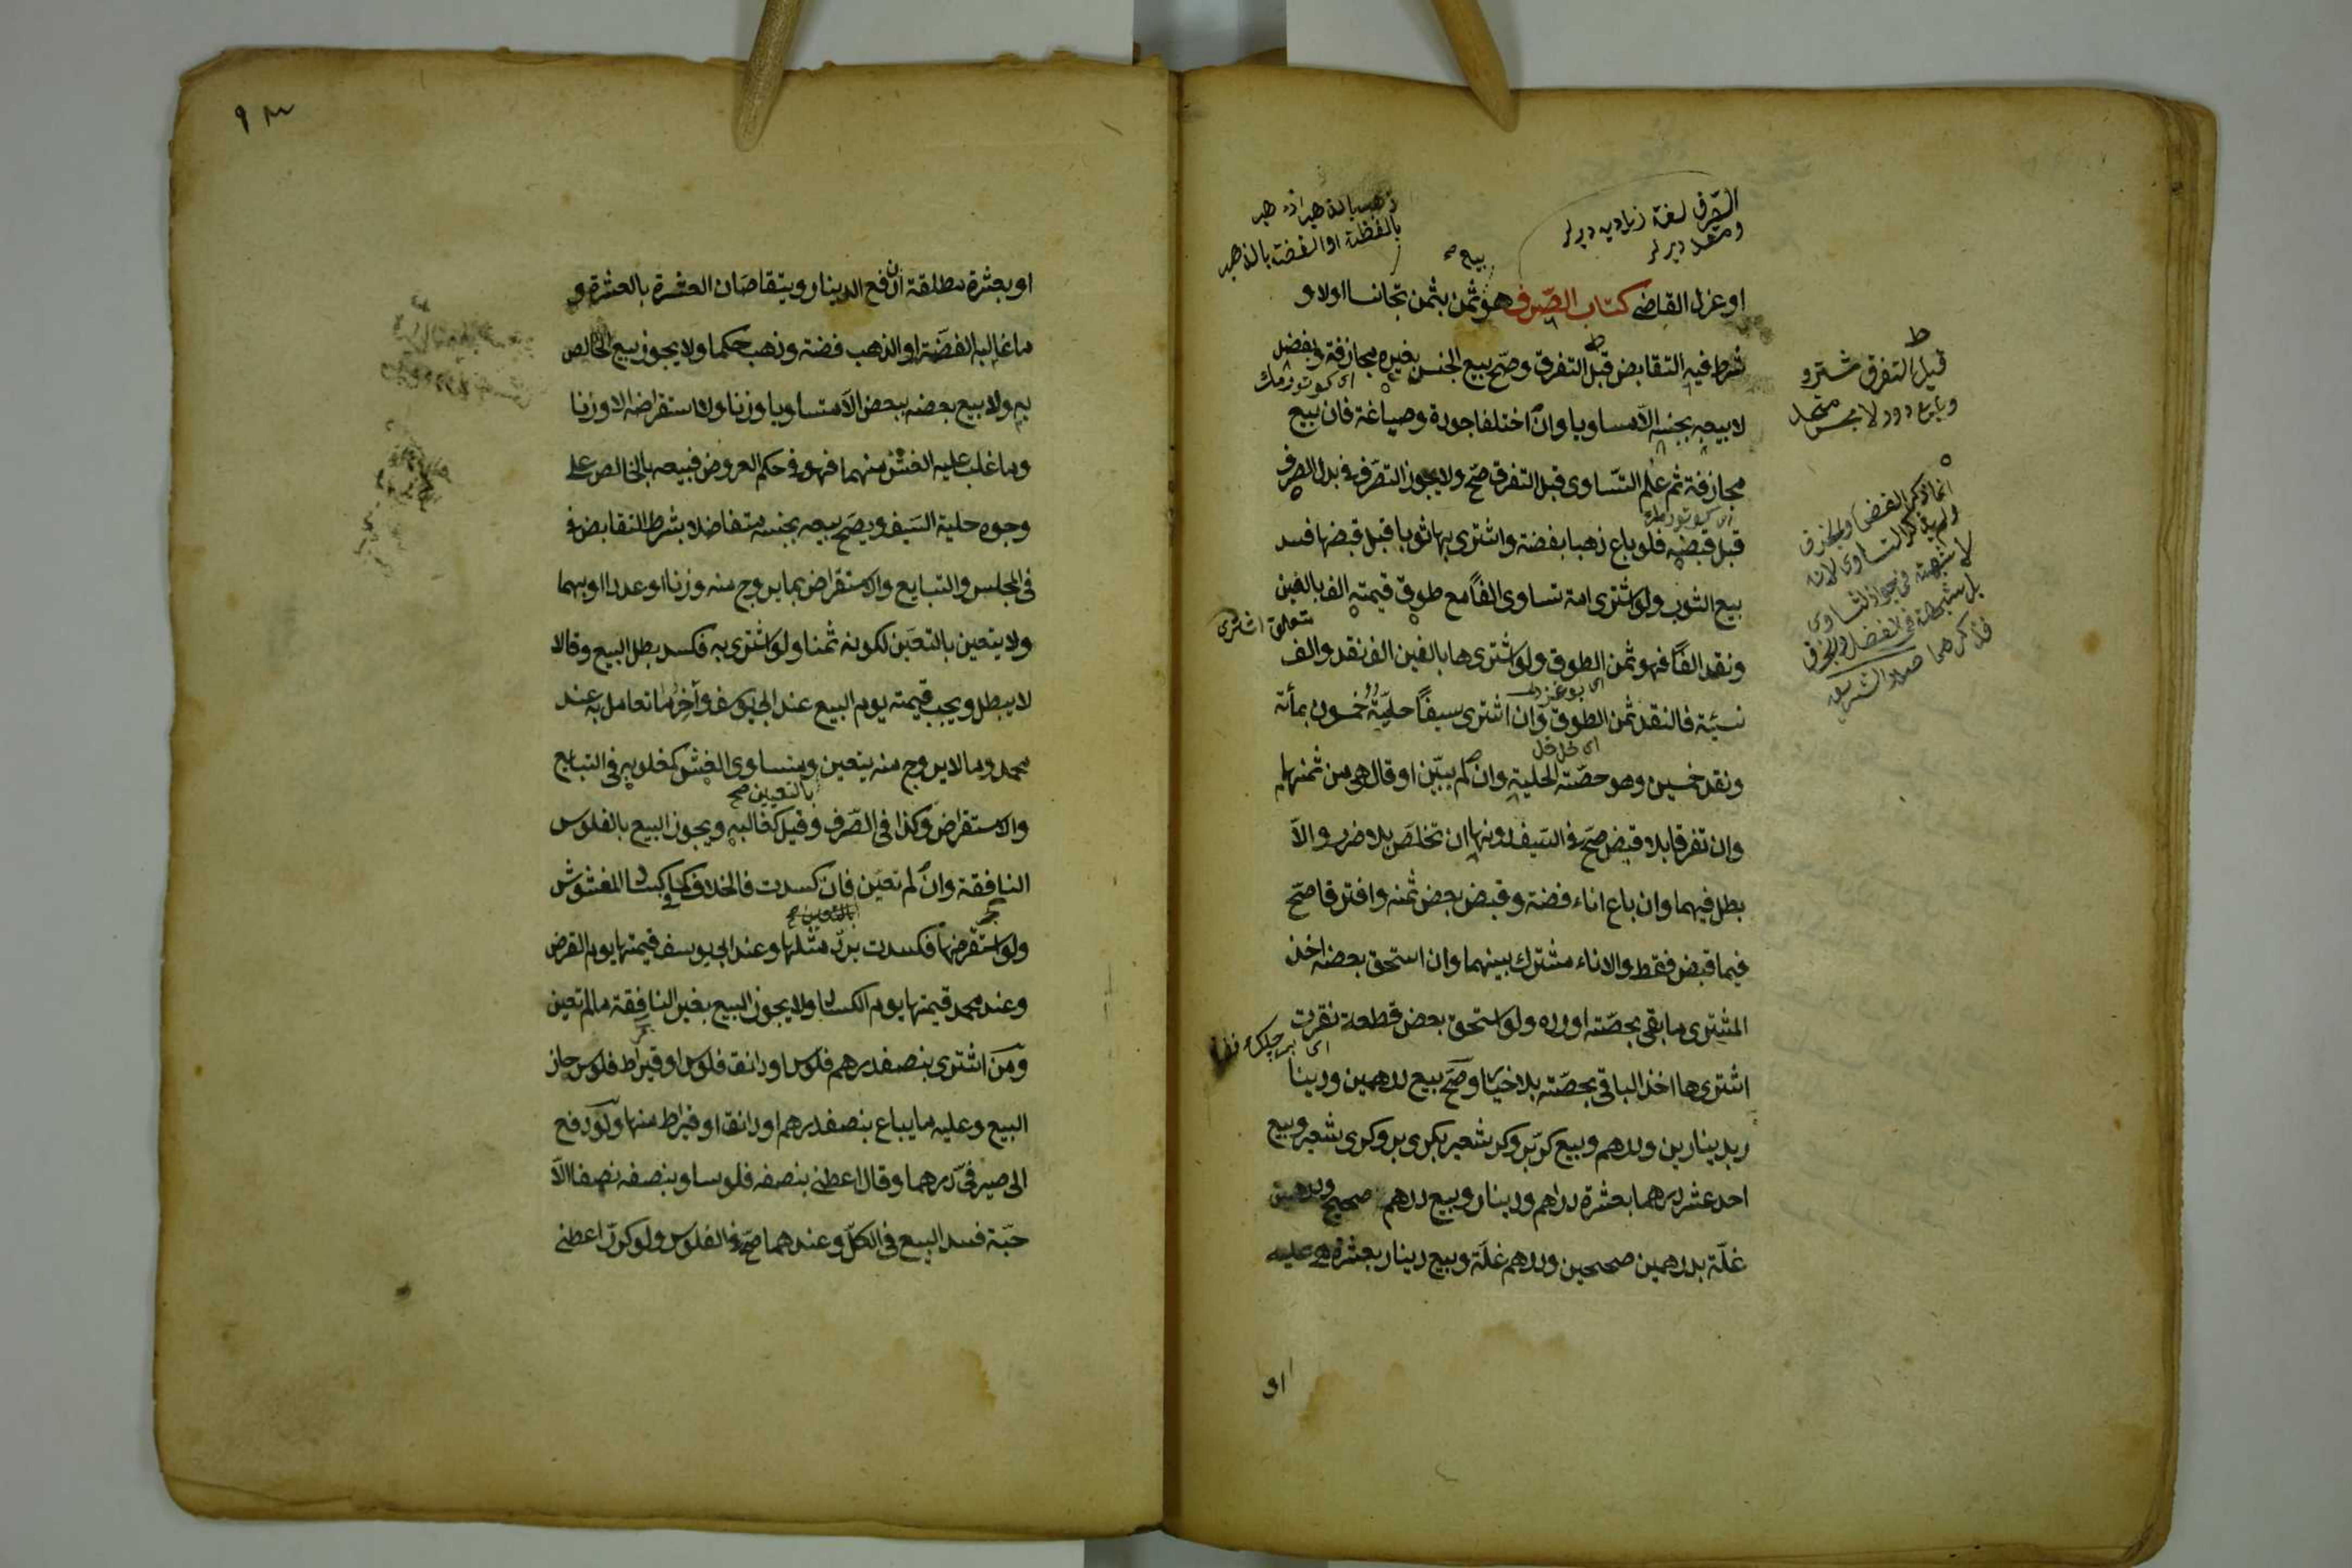 الصرف لغة زيادیه دیرلر
و نقله دیرلر
ذهب بالذهب او ذهب
بالفضة او الفضة بالذهب
بیع صح
او عزل القاضي كتاب الصرف هو ثمن بثمن تجانسا اولا و
شرط فيه التقابض قبل التفرق وصح بيع الجنس بغيره مجازفة وبفضل
لا بيعه بجنسه الا مساويا وان اختلفا جودة وصياغة فان بيع
مجازفة ثم علم التساوى قبل التفرق صح ولا يجوز التصرف في بدل الصرف
قبل قبضه فلو باع ذهبا بفضة واشترى بها ثوبا قبل قبضها فسد
بيع الثوب ولو اشترى امة تساوى الفاً مع طوق قيمته الف بالفين
ونقد الفاً فهو ثمن الطوق ولو اشتراها بالفين الف نقد والف
نسيئة فالنقد ثمن الطوق وان اشترى سيفاً حليته خمسون بمأئة
ونقد خمسين وهو حصة الحلية وان لم يبين او قال هي من ثمنهما
وان تفرقا بلا قبض صح في السيف دونها ان تخلص بلا ضرر والا
بطل فيهما وان باع اناء فضة وقبض بعض ثمنه وافترقا صح
فيما قبض فقط والاناء مشترك بينهما وان استحق بعضه اخذ
المشترى ما بقى بحصته او رده ولو استحق بعض قطعة نقرت
اشتراها اخذ الباقي بحصته بلا خيار وصح بيع درهمين ودينار
بدينارين ودرهم وبيع كر بر وكر شعير بكرى بر وكرى شعير وبيع
احد عشر درهما بعشرة دراهم ودينار وبيع درهم صحيح ودرهمين
غلة بدرهمين صحيحين ودرهم غلة وبيع دينار بعشرة هي عليه
قبل التفرق
انما ذكر الفضل والجزف
ولم يذكر التساوى لانه
لا شبهة في جواز التساوى
بل شبهة في الفضل والجزف
فذكرهما صدر الشريعه
متعلق اشترى
او
٩٣
او بعشرة مطلقة ان دفع الدينار ويتقاصان العشرة بالعشرة و
ما غالبه الفضة او الذهب فضة وذهب حكما ولا يجوز بيع الخالص
به ولا بيع بعضه ببعض الا متساويا وزنا ولا استقراضه الا وزنا
وما غلب عليه الغش منهما فهو في حكم العروض فبيعه بالخالص على
وجوه حلية السيف ويصح بيعه بجنسه متفاضلا بشرط التقابض في
في المجلس والتبايع والاستقراض بما يروج منه وزنا او عددا او بهما
ولا يتعين بالتعين لكونه ثمنا ولو اشترى به فكسد بطل البيع وقالا
لا يبطل ويجب قيمته يوم البيع عند ابى يوسف وآخر ما تعامل به عند
محمد وما لا يروج منه يتعين ومتساوى الغش كمغلوبه في التبايع
بالتعيين صح
والاستقراض وكذا في الصرف وقيل كغالبه ويجوز البيع بالفلوس
النافقة وان لم تعين فان كسدت فالخلاف كما في كساد المغشوش
ولو استقرضها فكسدت يرد مثلها وعند ابى يوسف قيمتها يوم القرض
وعند محمد قيمتها يوم الكساد ولا يجوز البيع بغير النافقة ما لم تعين
ومن اشترى بنصف درهم فلوس او دانق فلوس او قيراط فلوس جاز
البيع وعليه ما يباع بنصف درهم او دانق او قيراط منها ولو دفع
الى صيرفى درهما وقال اعطنى بنصفه فلوسا وبنصفه نصفا الا
حبة فسد البيع في الكل وعندهما صح في الفلوس ولو كرر اعطنى